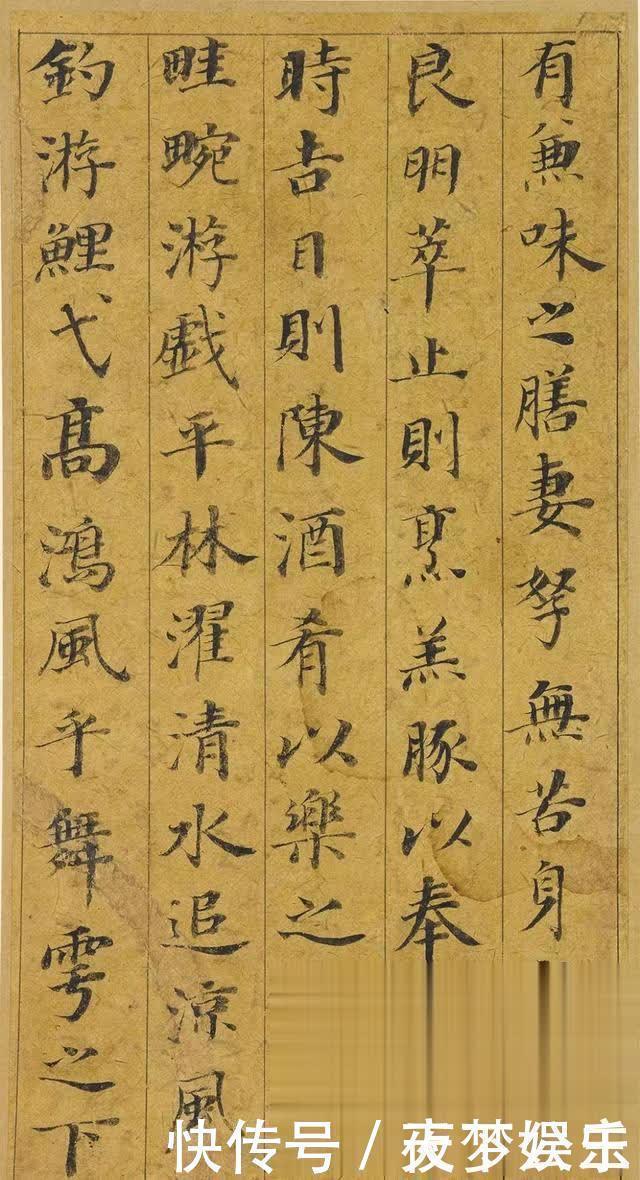 有兼味之膳妻孥無苦身
良朋萃止則烹羔豚以奉
時吉日則陳酒肴以樂之
畦畹游戯平林濯清水追涼風
釣游鯉弋高鴻風乎舞雩之下
快传号 / 夜梦娱乐